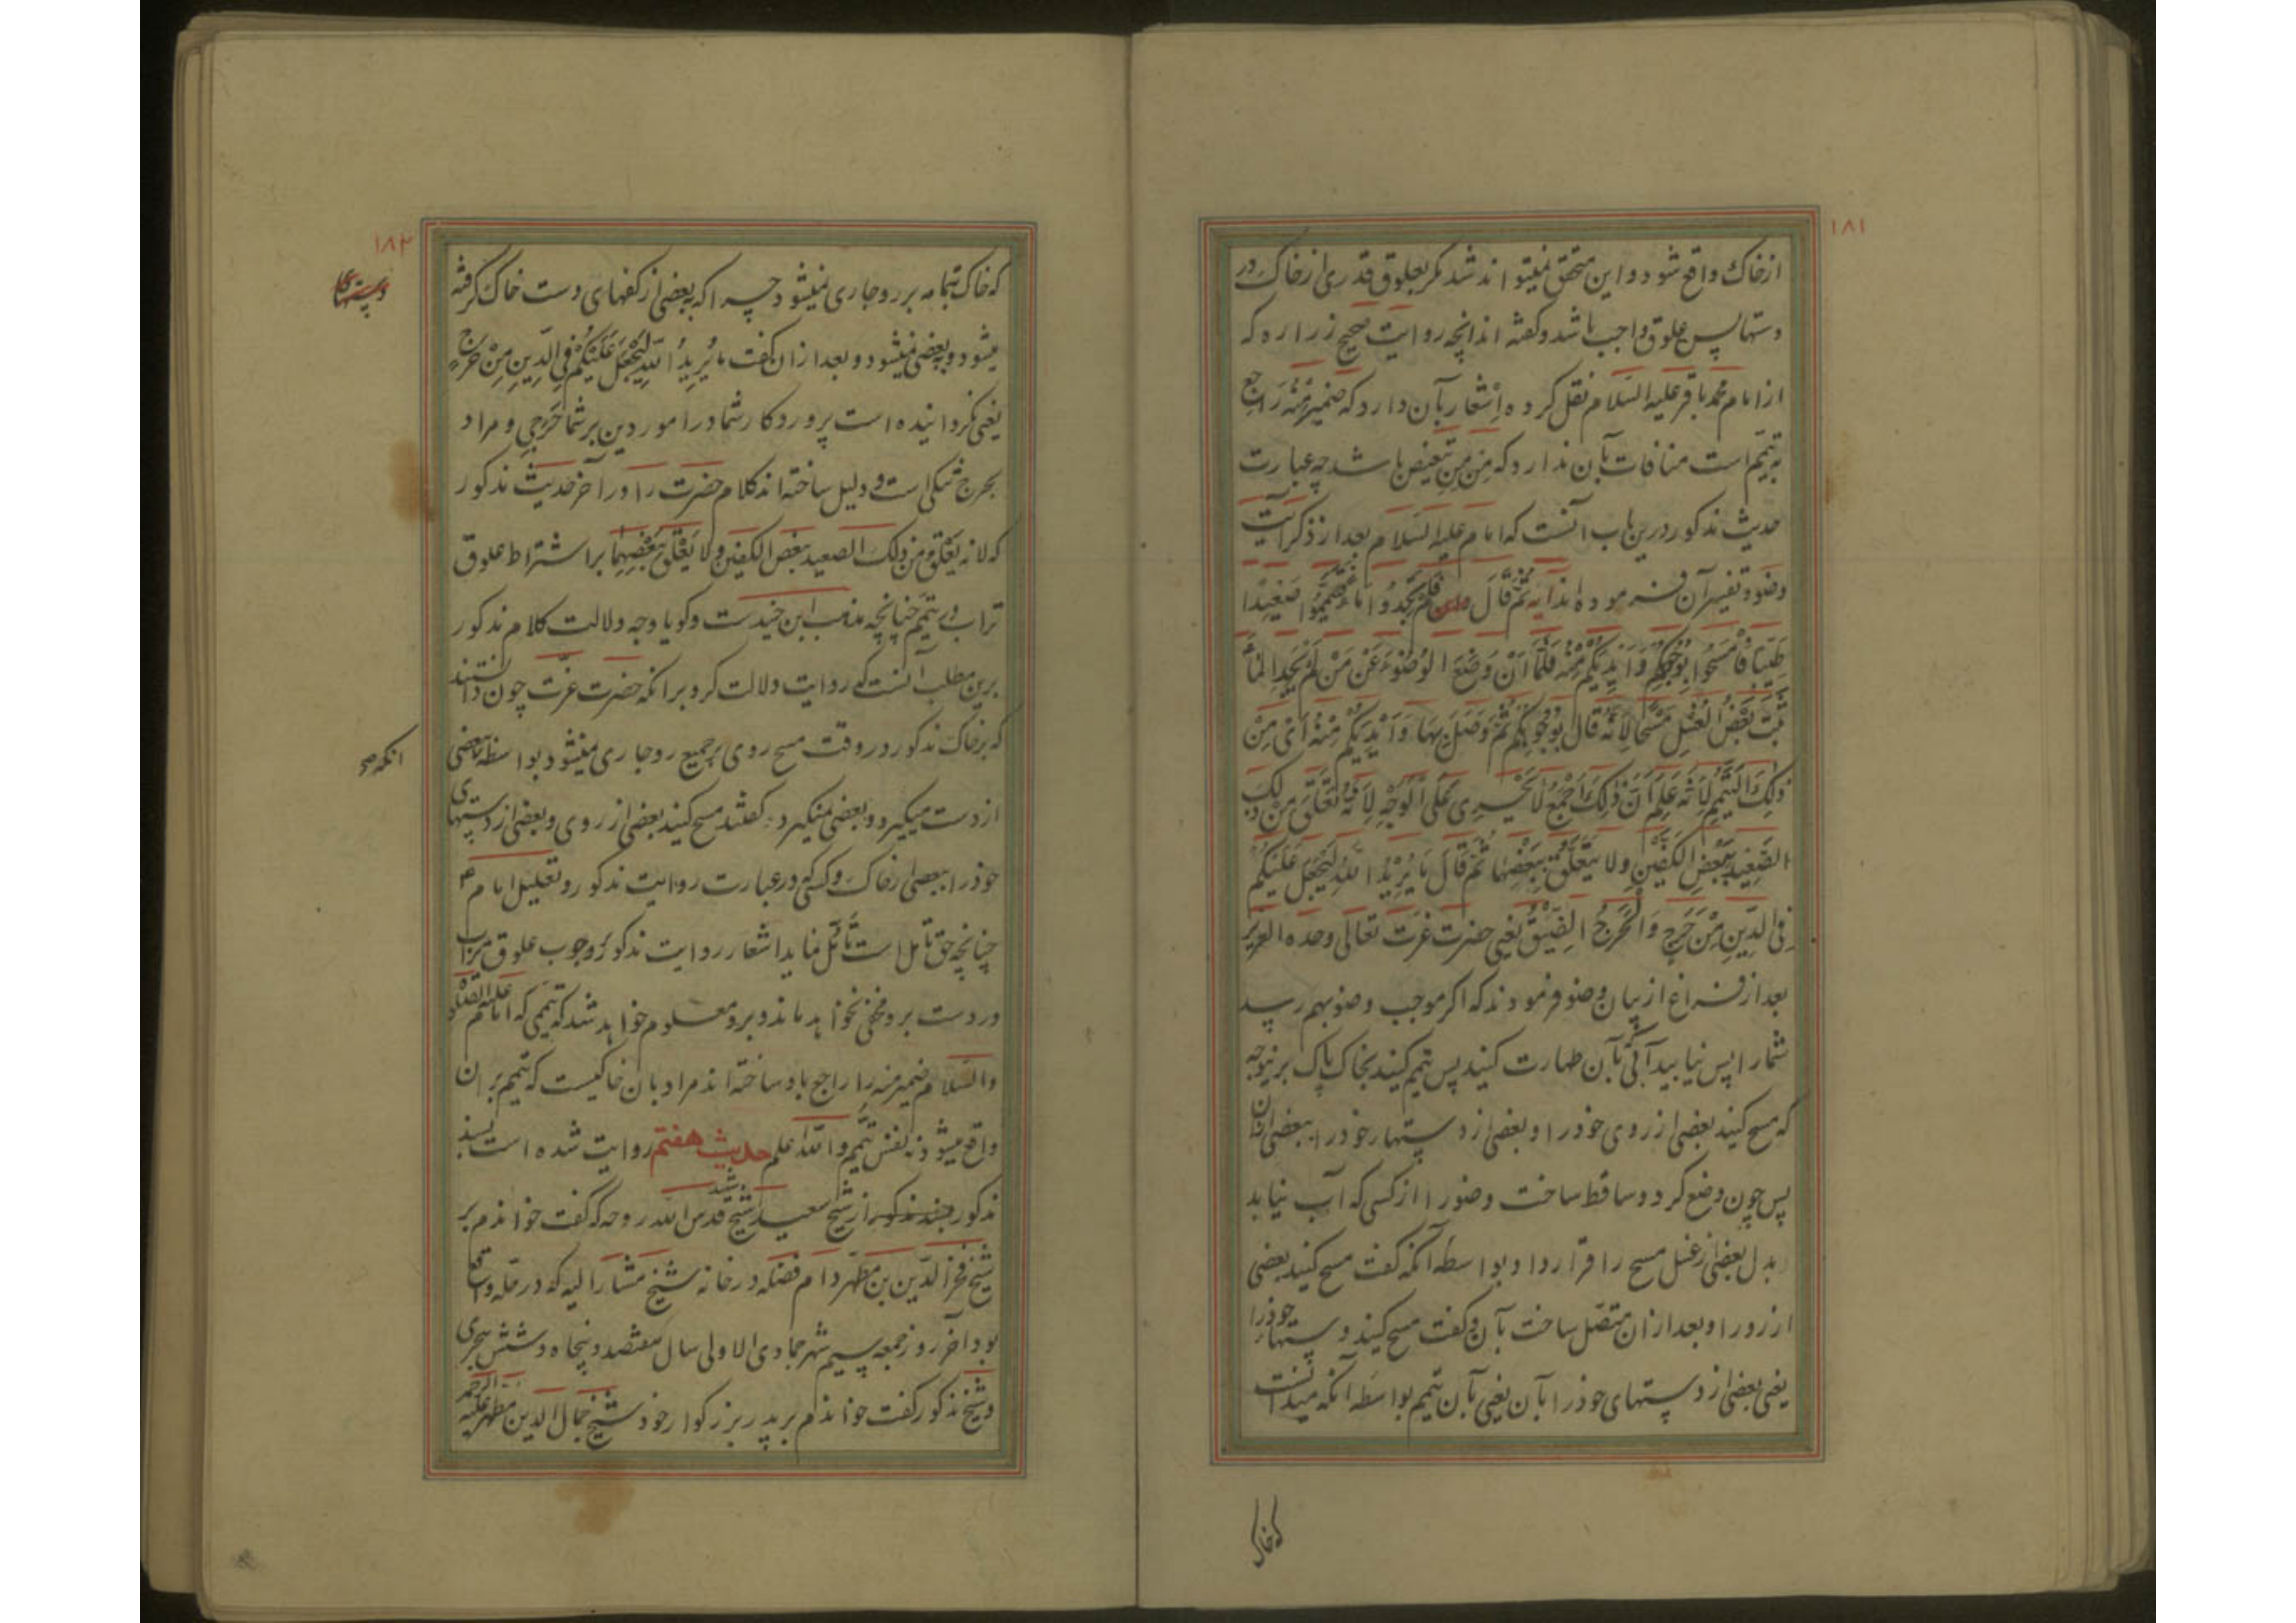 ۱۸۱
ازخاک واقع شود و این متحقق نمیتواند شد مکر بعلوق قدری ازخاک در
دستها پس علوق واجب باشد و کفته اند انچه روایت صحیح زراره که
از امام محمد باقر علیه السلام نقل کرده اِشْعار بآن دارد که ضمیر مِنْهُ راجع
به تیمّم است منافات بآن ندارد که مِن مِنِ تبعیض باشد چه عبارت
حدیث مذکور درین باب آنست که امام علیه السلام بعد از ذکر آیت
وضو و تفسیر آن فرموده اند ثُمَّ قَالَ فَلَمْ تَجِدُوا مَاءً فَتَيَمَّمُوا صَعِيدًا
طَيِّبًا فَامْسَحُوا بِوُجُوهِكُمْ وَأَيْدِيكُمْ مِنْهُ فَلَمَّا أَنْ وَضَعَ الوُضُوءَ عَنْ مَنْ لَمْ يَجِدِ المَاءَ
ثَبَتَ بَعْضُ الْغَسْلِ مَسْحًا لِأَنَّهُ قَالَ بِوُجُوهِكُمْ ثُمَّ وَصَلَ بِهَا وَأَيْدِيكُمْ مِنْهُ أَیْ مِنْ
ذَلِكَ التَّيَمُّمِ لِأَنَّهُ عَلِمَ أَنَّ ذَلِكَ أَجْمَعُ لَا يَجْرِی عَلَی الْوَجْهِ لِأَنَّهُ تَعَلَّقَ مِنْ ذَلِكَ
الصَّعِيدِ بِبَعْضِ الْكَفَّيْنِ وَلَا يَتَعَلَّقُ بِبَعْضِهَا ثُمَّ قَالَ مَا يُرِيدُ اللَّهُ لِيَجْعَلَ عَلَيْكُمْ
فِی الدِّينِ مِنْ حَرَجٍ وَالْحَرَجُ الضِّيقُ یعنی حضرت عزت تعالی وحده العزیز
بعد از فراغ از بیان وضو فرمودند که اکر موجب وضو بهم رسد
شما را پس نیابید آبی که بآن طهارت کنید پس تیمم کنید بخاک پاک برینوجه
که مسح کنید بعضی از روی خود را و بعضی از دستهار خود را ببعضی ازان
پس چون وضع کرد و ساقط ساخت وضو را از کسی که آب نیابد
بدل بعضی از غسل مسح را قرار داد و بواسطه آنکه کفت مسح کنید بعضی
از رو را و بعد ازان متصل ساخت بآن و کفت مسح کنید دستهار خود را
یعنی بعضی از دستهای خود را بآن یعنی بآن تیمم بواسطه آنکه میدانست
که خاک
۱۸۲
که خاک بتمامه بر رو جاری نمیشود چرا که به بعضی از کفهای دست خاک کرفته
میشود و به بعضی نمیشود و بعد ازان کفت ما يُرِيدُ اللَّهُ لِيَجْعَلَ عَلَيْكُمْ فِی الدِّينِ مِنْ حَرَجٍ
یعنی نکردانیده است پروردکار شما در امور دین بر شما حَرَجی و مراد
بحرج تنکی است و دلیل ساخته اند کلام حضرت را در آخر حدیث مذکور
که لانه يَعْلَقُ مِن ذلك الصعيد بِبَعْضِ الكفين ولا يَعْلَقُ بِبَعْضِهِمَا بر اشتراط علوق
تراب در تیمّم چنانچه مذهب ابن جنیدست و کویا وجه دلالت کلام مذکور
برین مطلب آنست که روایت دلالت کرد بر انکه حضرت عزّت چون دانستند
که بر خاک مذکور در وقت مسح روی بر جمیع رو جاری نمیشود بواسطه بعضی
انکه صح
از دست میکیرد و بعضی نمیکیرد کفتند مسح کنید بعضی از روی و بعضی از دستهای
خود را ببعضی از خاک و کسی که در عبارت روایت مذکور و تعلیل امام ع
چنانچه حق تأمل است تأمّل نماید اشعار روایت مذکور بوجوب علوق تراب
در دست برو مخفی نخواهد ماند و برو معلوم خواهد شد که تیممی که امام علیه الصلوة
والسلام ضمیر منه را راجع باو ساخته اند مراد بان خاکیست که تیمم بر ان
واقع میشود نه نفس تیمّم والله اعلم حدیث هفتم روایت شده است بسند
مذکور از شیخ سعید شیخ شهید قدس الله روحه که کفت خواندم بر
شیخ فخر الدین بن مطهر دام فضله در خانه شیخ مشار الیه که در حله واقع
بود آخر روز جمعه سیم شهر جمادی الاولی سال هفتصد و پنجاه و شش هجری
و شیخ مذکور کفت خواندم بر پدر بزرکوار خود شیخ جمال الدین مطهر علیه الرحمه